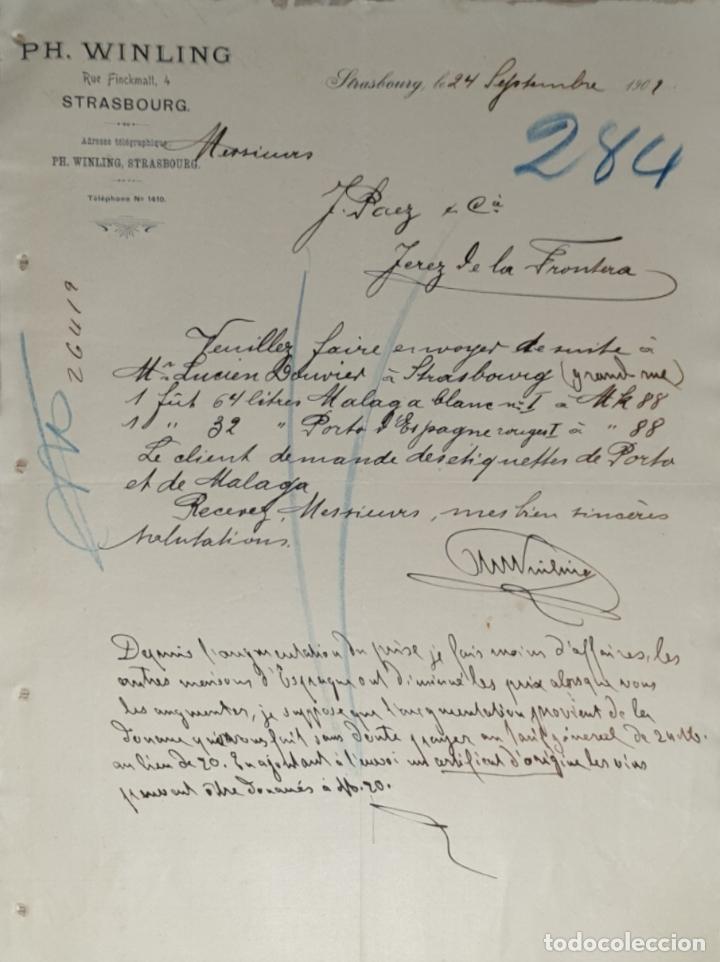 PH. WINLING
Rue Finckmatt, 4
STRASBOURG.
Adresse télégraphique:
PH. WINLING, STRASBOURG.
Téléphone No 1410.
Strasbourg, le 24 Septembre 190
284
Messieurs
J. Paez & Cia
Jerez de la Frontera
26419
Veuillez faire envoyer de suite à
Mr Lucien Bouvier à Strasbourg (grand-rue)
1 fût 64 litres Malaga blanc no I à Mk 88
1 " 32 " Porto d'Espagne rouge I à " 88
Le client demande des etiquettes de Porto
et de Malaga
Recevez, Messieurs, mes bien sincères
salutations.
Ph Winling
Depuis l'augmentation du prise je fais moins d'affaires, les
autres maisons d'Espagne ont diminué les prix alorsque vous
les augmenter, je suppose que l'augmentation provient de la
douane qui vous fait sans doute payer au tarif général de 24 M.
au lieu de 20. En ajoutant à l'envoi un certificat d'origine les vins
peuvent être douanés à M. 20.
todocoleccion